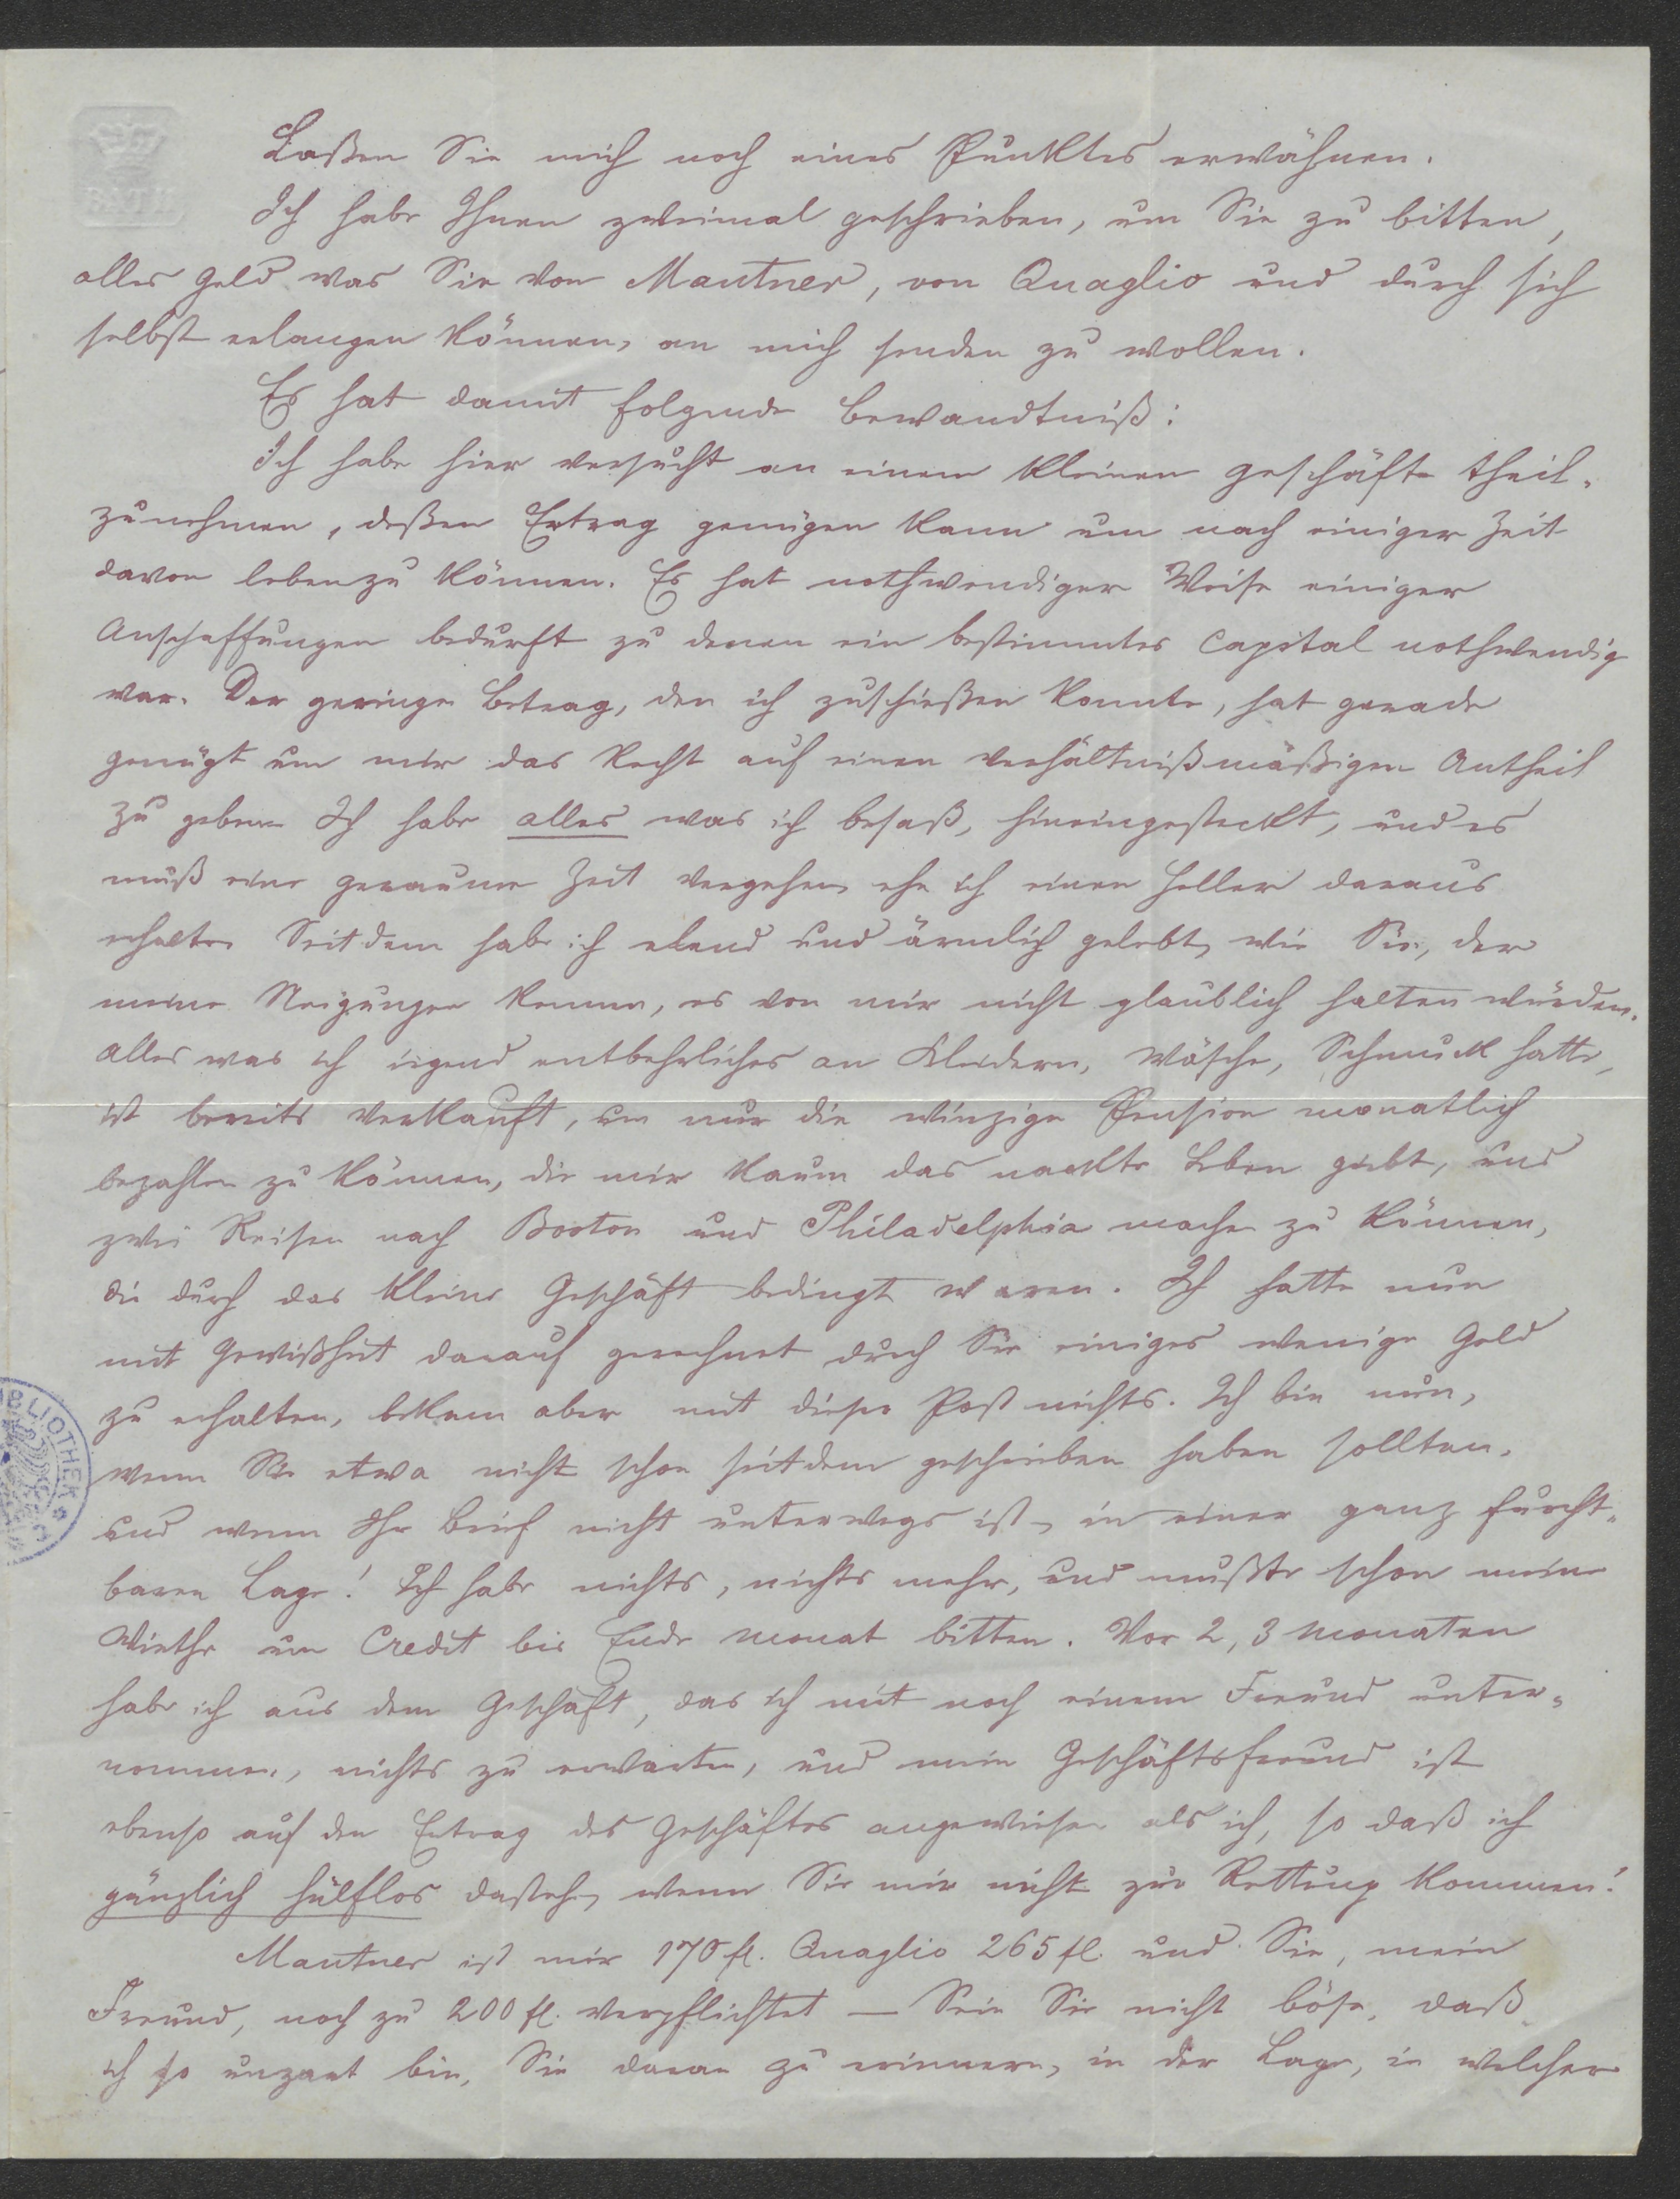 BATH
Laßen Sie mich noch eines Punktes erwähnen.
Ich habe Ihnen zweimal geschrieben, um Sie zu bitten,
alles Geld was Sie von Mautner, von Quaglio und durch sich
selbst erlangen können, an mich senden zu wollen.
Es hat damit folgende Bewandtniß:
Ich habe hier versucht an einem kleinen Geschäfte theil-
zunehmen, deßen Ertrag genügen kann um nach einiger Zeit
davon leben zu können. Es hat nothwendiger Weise einiger
Anschaffungen bedurft zu denen ein bestimmtes Capital nothwendig
war. Der geringe Betrag, den ich zuschießen konnte, hat gerade
genügt um mir das Recht auf einen verhältnißmäßigen Antheil
zu geben. Ich habe alles was ich besaß, hineingesteckt, und es
muß eine geraume Zeit vergehen, ehe ich einen Heller daraus
erhalte. Seitdem habe ich elend und ärmlich gelebt, wie Sie, der
meine Neigungen kennen, es von mir nicht glaublich halten würden.
Alles was ich irgend entbehrliches an Kleidern, Wäsche, Schmuck hatte,
ist bereits verkauft, um nur die winzige Pension monatlich
bezahlen zu können, die mir kaum das nackte Leben giebt, und
zwei Reisen nach Boston und Philadelphia machen zu können,
die durch das kleine Geschäft bedingt waren. Ich hatte nun
mit Gewißheit darauf gerechnet durch Sie einiges wenige Geld
zu erhalten, bekam aber mit dieser Post nichts. Ich bin nun,
wenn Sie etwa nicht schon seitdem geschrieben haben sollten,
und wenn Ihr Brief nicht unterwegs ist, in einer ganz furcht-
baren Lage! Ich habe nichts, nichts mehr, und mußte schon meine
Wirthe um Credit bis Ende Monat bitten. Vor 2, 3 Monaten
habe ich aus dem Geschäft, das ich mit noch einem Freund unter-
nommen, nichts zu erwarten, und mein Geschäftsfreund ist
ebenso auf den Ertrag des Geschäftes angewiesen als ich, so daß ich
gänzlich hülflos dastehe, wenn Sie mir nicht zur Rettung kommen!
Mautner ist mir 170 fl. Quaglio 265 fl. und Sie, mein
Freund, noch zu 200 fl. verpflichtet — Sein Sie nicht böse, daß
ich so unzart bin, Sie daran zu erinnern, in der Lage, in welcher
BIBLIOTHEK